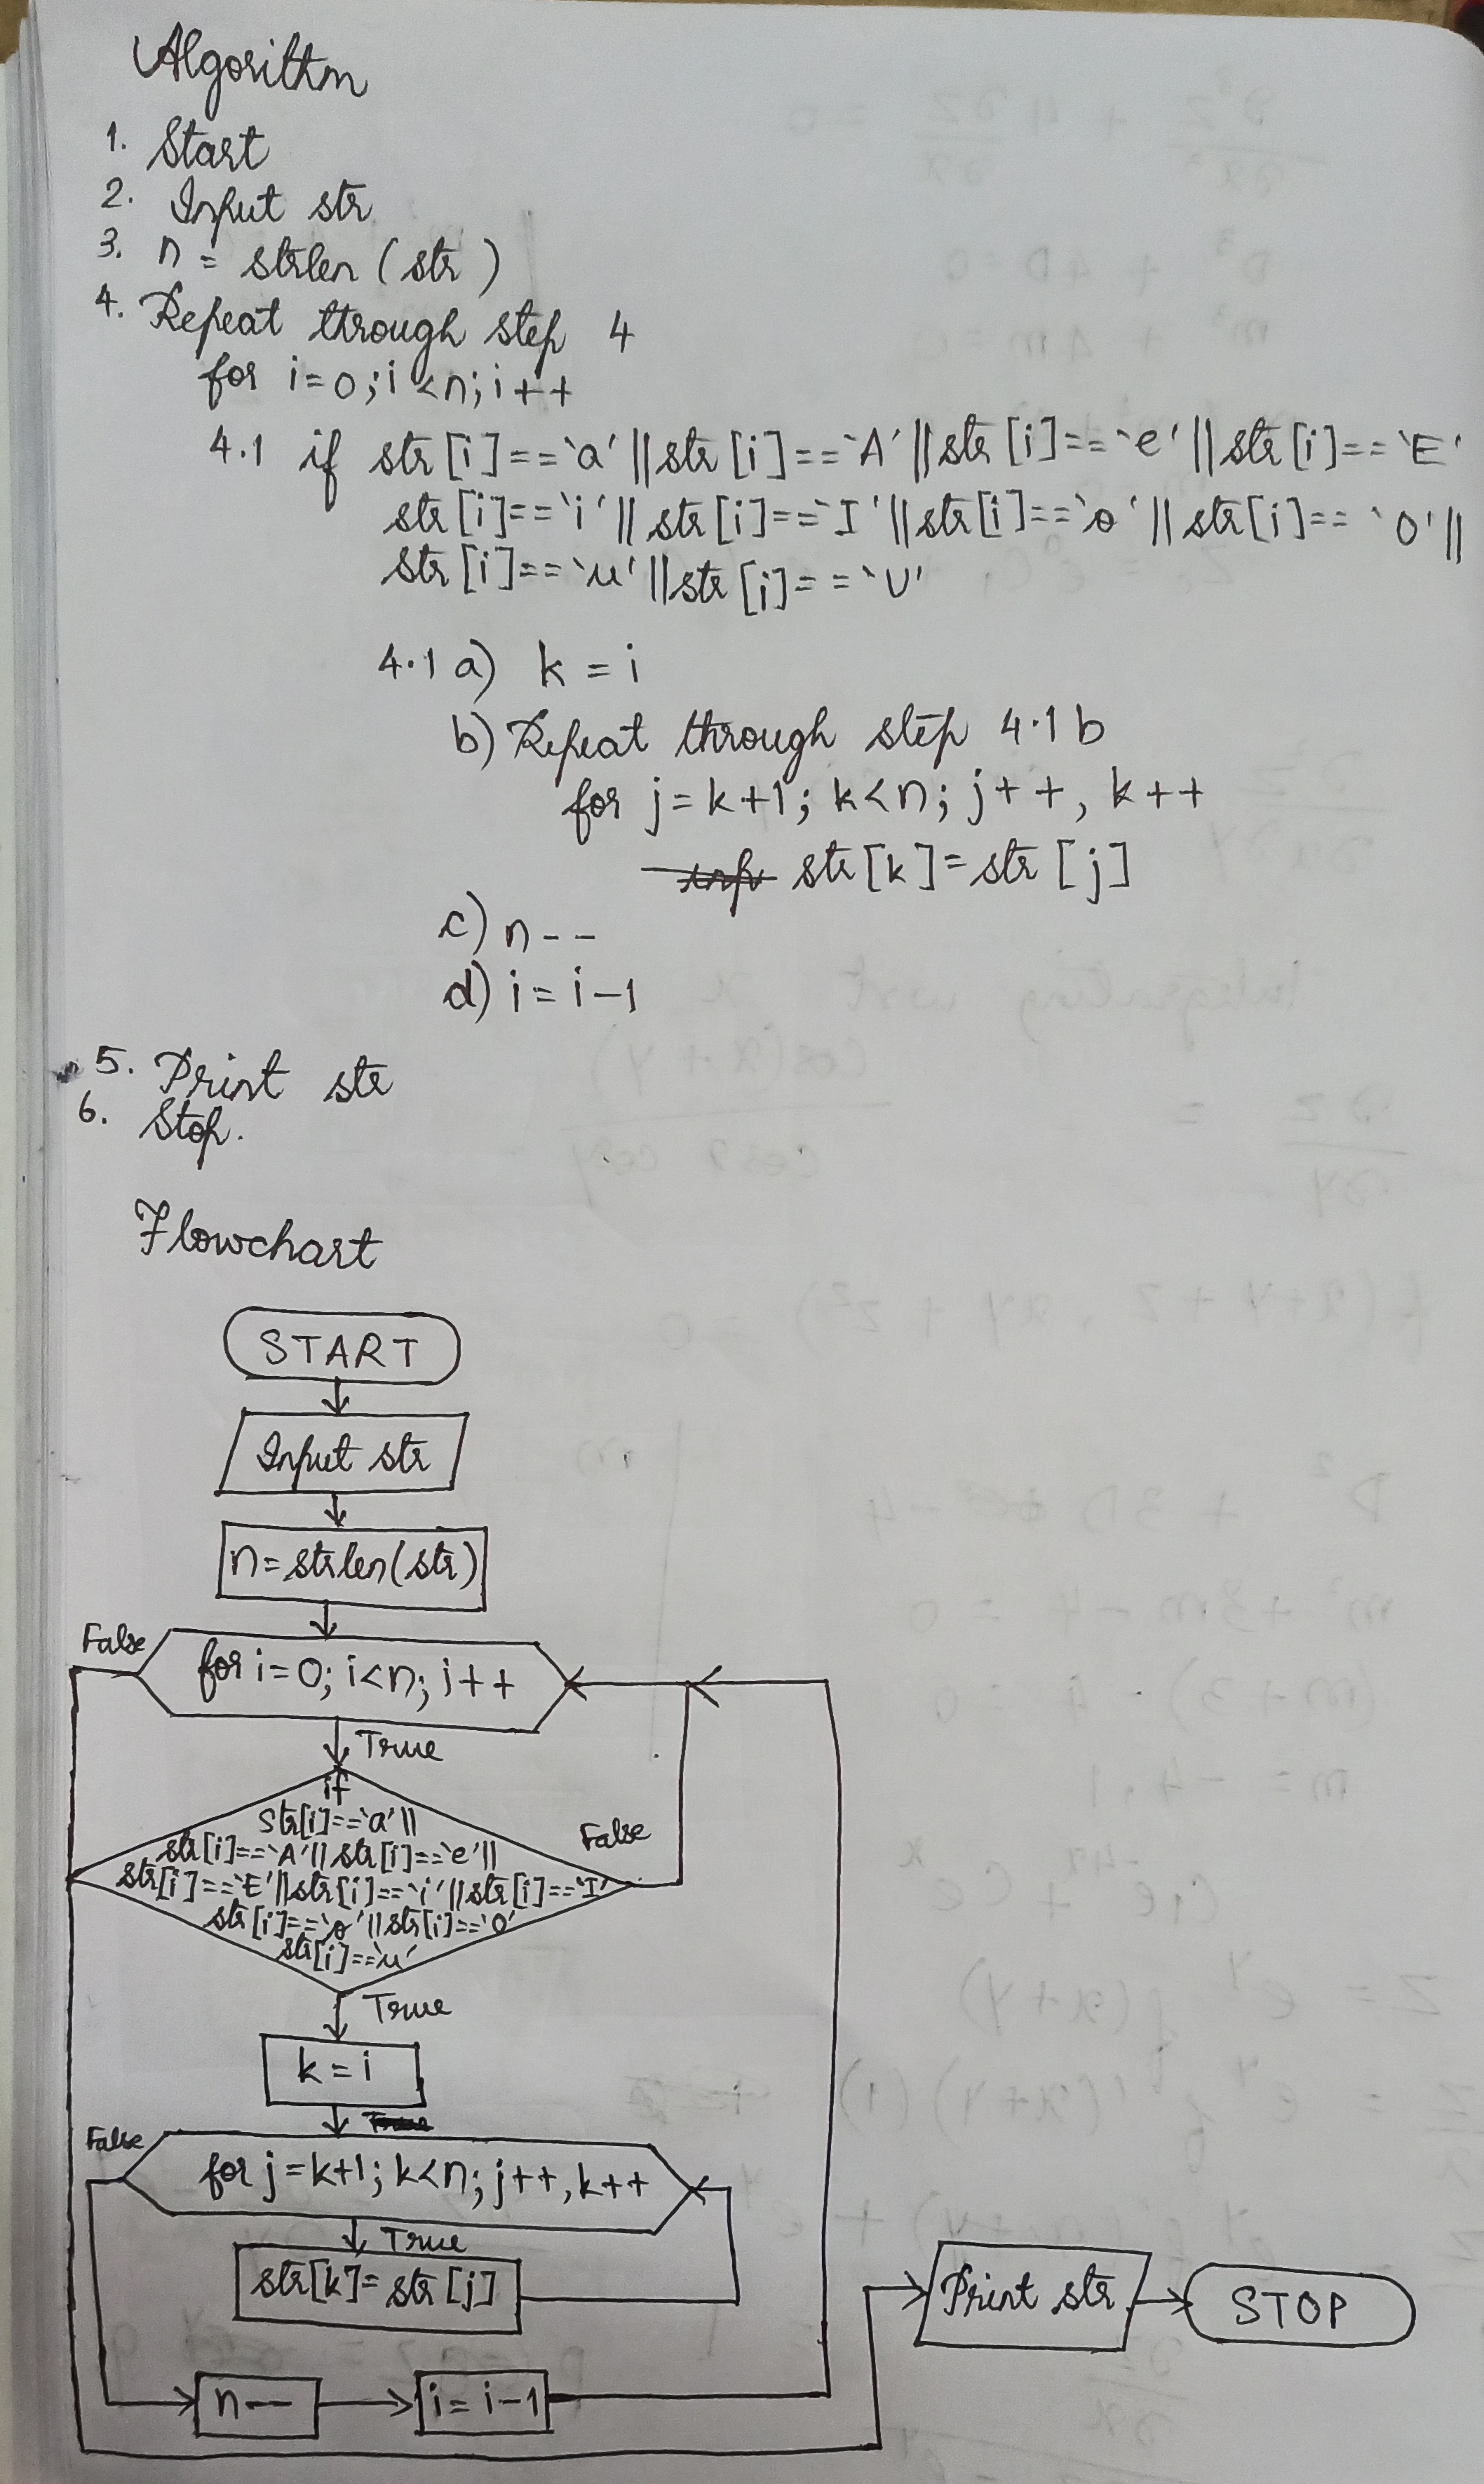 Algorithm
1. Start
2. Input str
3. n = strlen (str)
4. Repeat through step 4
for i=0; i<n; i++
4.1 if str[i]==`a'||str[i]==`A'||str[i]==`e'||str[i]==`E'
str[i]==`i'||str[i]==`I'||str[i]==`o'||str[i]==`O'||
str[i]==`u'||str[i]==`U'
4.1 a) k = i
b) Repeat through step 4.1 b
for j=k+1; k<n; j++, k++
str[k]=str[j]
c) n--
d) i=i-1
5. Print str
6. Stop.
Flowchart
START
Input str
n=strlen(str)
False
for i=0; i<n; i++
True
if
str[i]==`a'||
str[i]==`A'||str[i]==`e'||
False
str[i]==`E'||str[i]==`i'||str[i]==`I'
str[i]==`o'||str[i]==`O'
str[i]==`u'
True
k=i
False
for j=k+1; k<n; j++, k++
True
str[k]=str[j]
Print str
STOP
n--
i=i-1